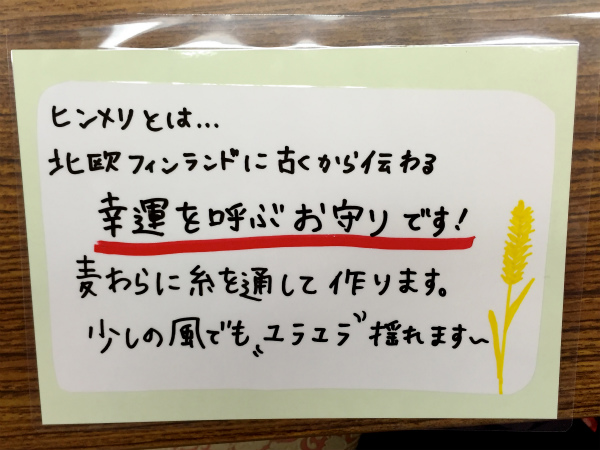 ヒンメリとは...
北欧フィンランドに古くから伝わる
幸運を呼ぶお守りです!
麦わらに糸を通して作ります。
少しの風でも〝ユラユラ〞揺れます〜